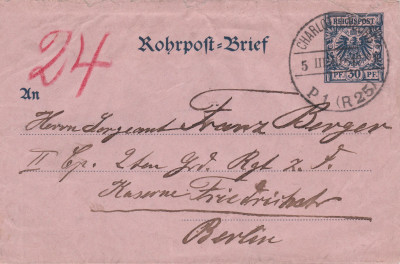 24
Rohrpost-Brief
CHARLO
5 II
P.1 (R25)
REICHSPOST
PF. 30 PF.
An
Herrn Sergeant Franz Berger
II Cp. 2ten Grd. Rgt z. F.
Kaserne Friedrichstr
Berlin